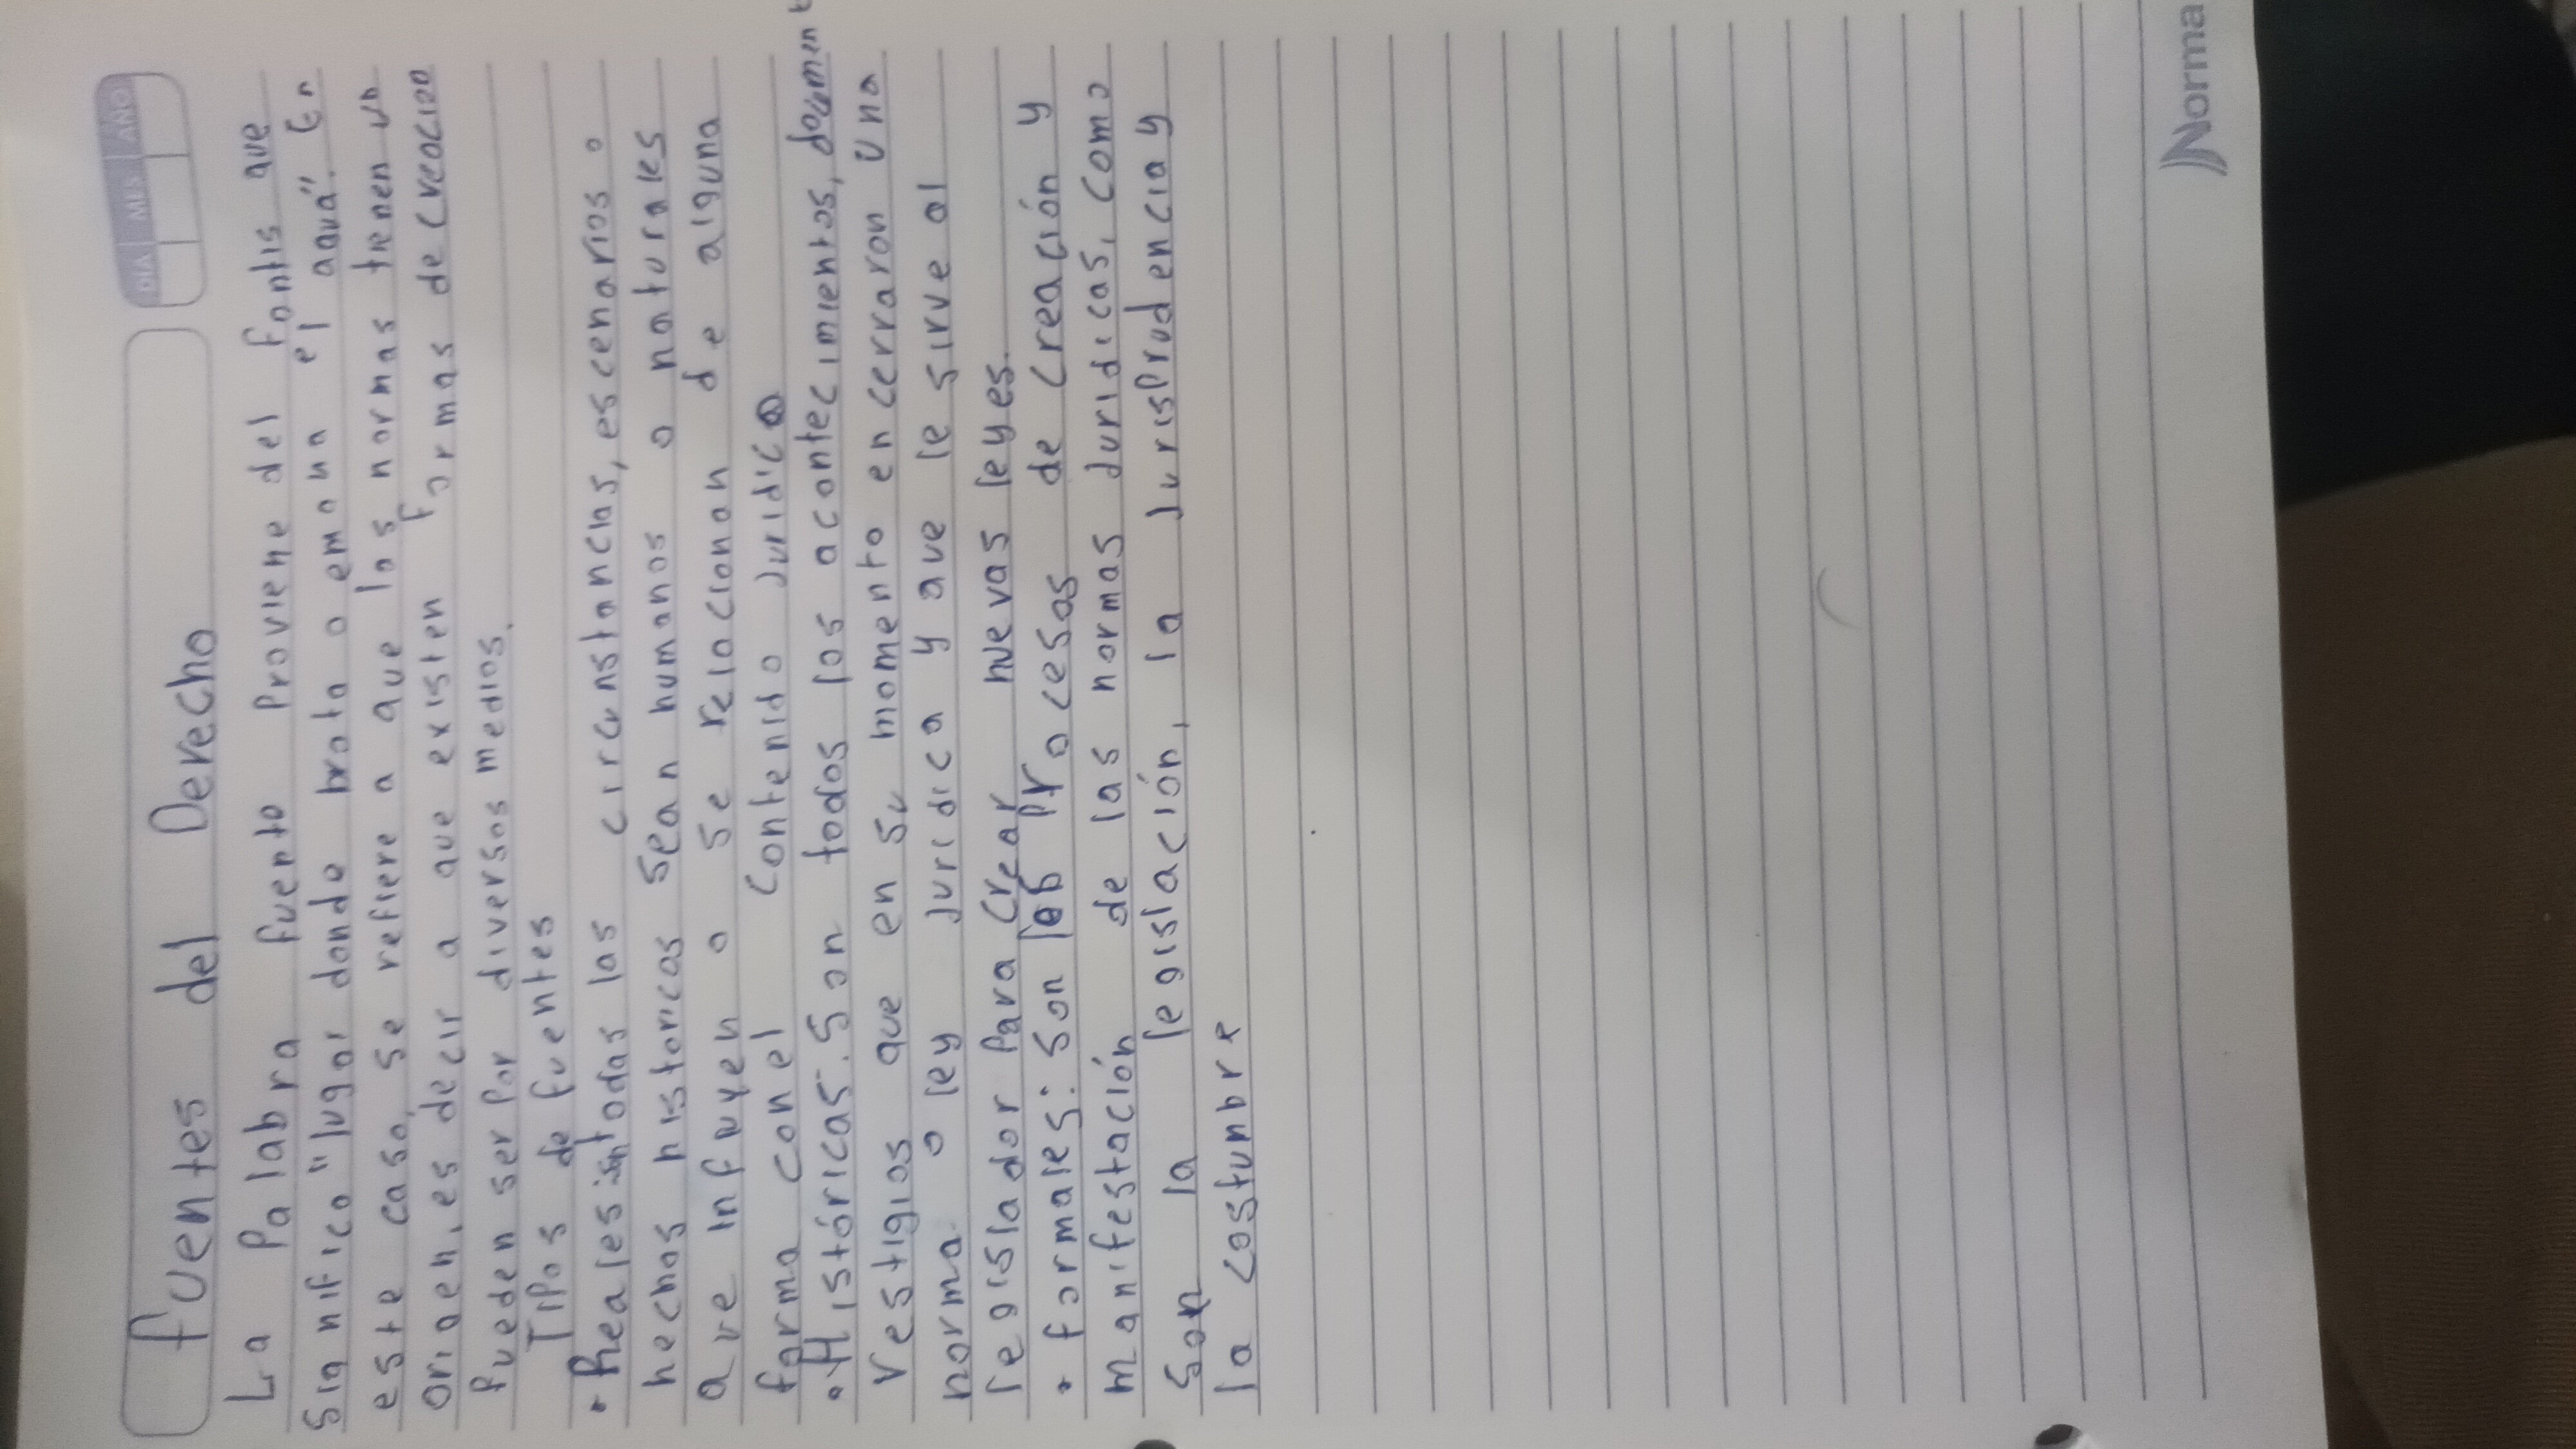 DIA MES AÑO
Fuentes del Derecho
La Palabra fuente Proviene del fontis que
Significa "lugar donde brota o emana el aguá". En
este caso, se refiere a que las normas tienen un
origen, es decir a que existen formas de creación
Pueden ser Por diversos medios.
Tipos de fuentes
• Reales: son todas las circunstancias, escenarios o
hechos historicos sean humanos o naturales
que infuyen o se relacionan de alguna
forma con el contenido Juridico
• Históricas: Son todos los acontecimientos, document
vestigios que en su momento encerraron una
norma o ley Juridica y que le sirve al
legislador Para crear nuevas leyes.
• formales: Son los Procesos de Creación y
manifestación de las normas Juridicas, como
Son la legislación, la JurisPrudencia y
la costunbre
Norma